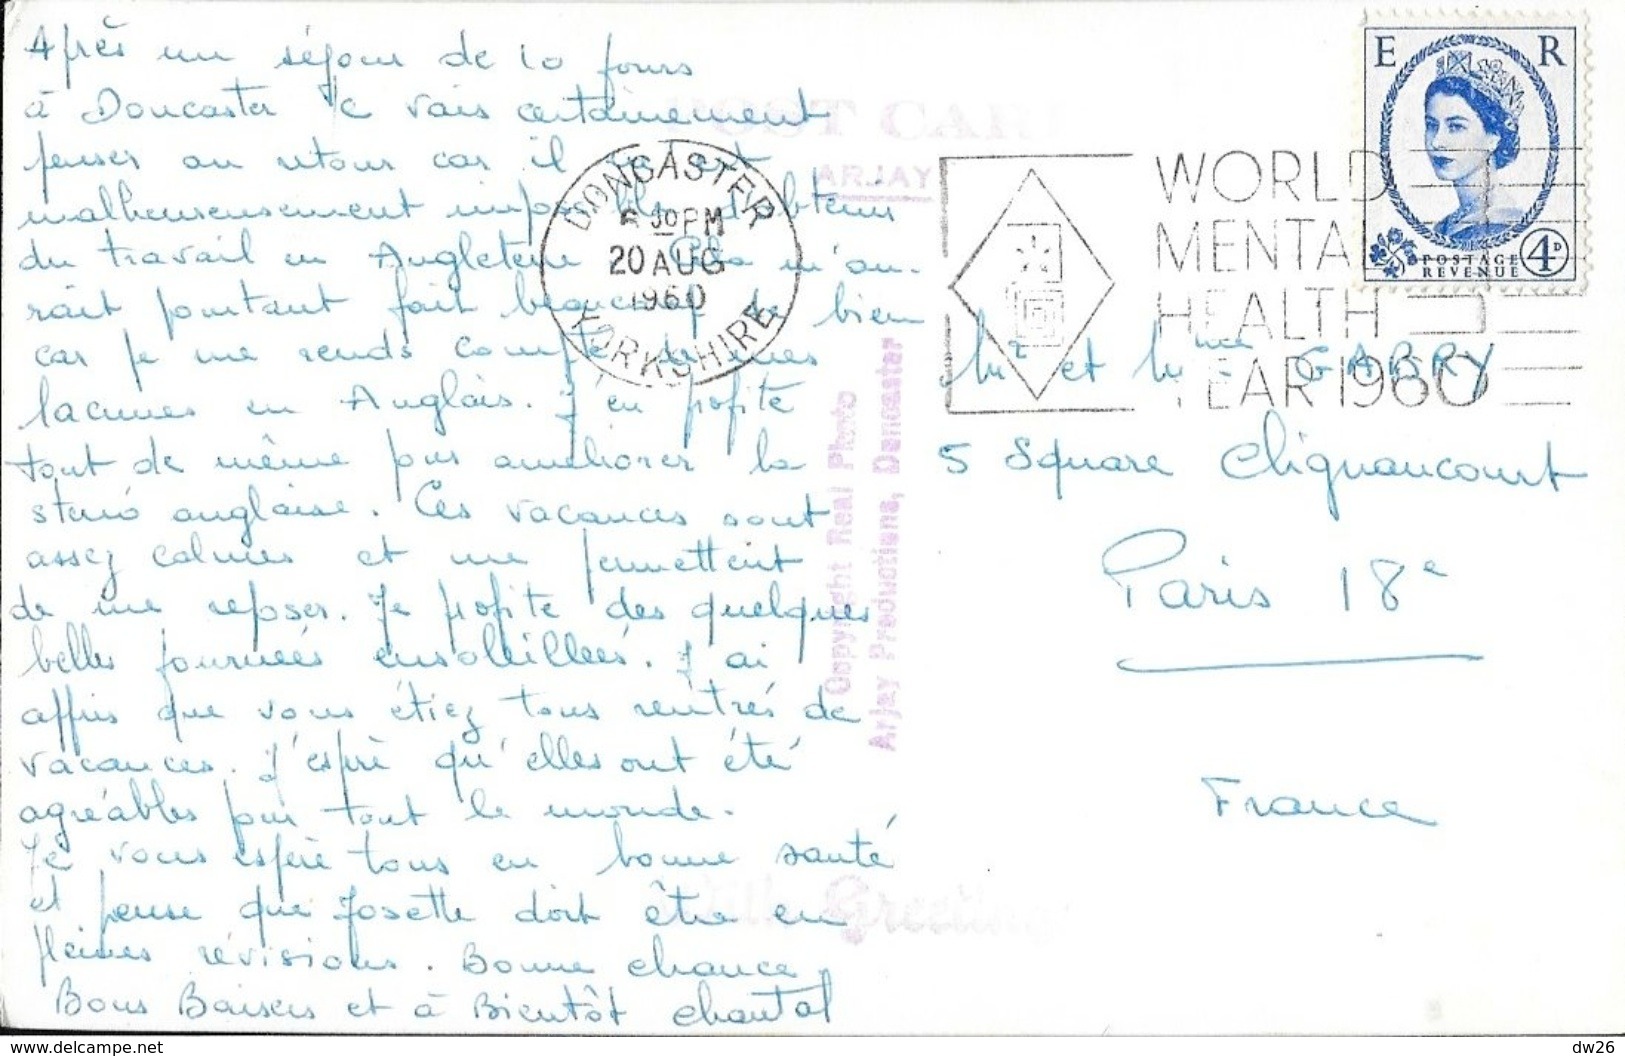 Après un séjour de 10 jours
à Doncaster je vais certainement
penser au retour car il est
malheureusement impossible d'obtenir
du travail en Angleterre. Cela m'au-
rait pourtant fait beaucoup de bien
car je me rends compte de mes
lacunes en Anglais. J'en profite
tout de même pour améliorer la
sténo anglaise. Ces vacances sont
assez calmes et me permettent
de me reposer. Je profite des quelques
belles journées ensoleillées. J'ai
appris que vous étiez tous rentrés de
vacances. J'espère qu'elles ont été
agréables pour tout le monde.
Je vous espère tous en bonne santé
et pense que Josette doit être en
pleines révisions. Bonne chance.
Bons Baisers et à Bientôt Chantal
POST CARD
ARJAY
DONCASTER
6 30 PM
20 AUG
1960
YORKSHIRE
WORLD
MENTAL
HEALTH
YEAR 1960
E R
POSTAGE
REVENUE
4D
Copyright Real Photo
Arjay Productions, Doncaster
With Greetings
Mr et Mme GABRY
5 Square Clignancourt
Paris 18e
France
dw26
delcampe.net